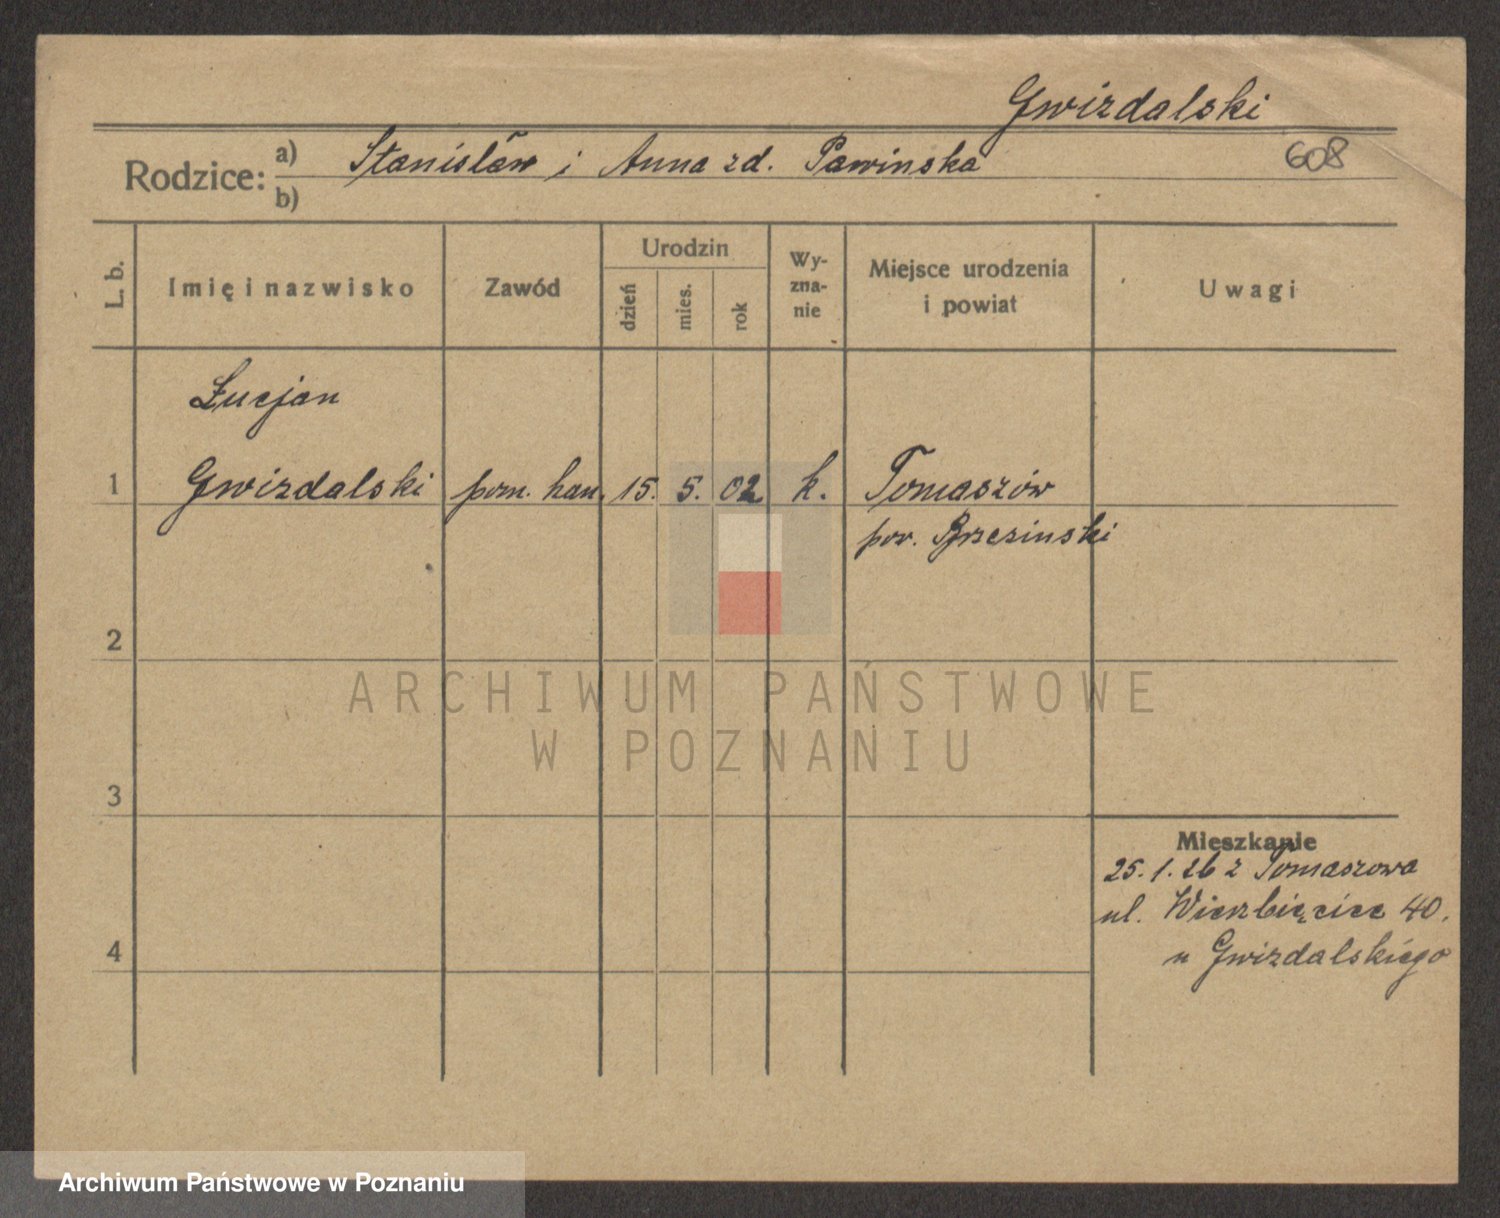 Gwizdalski
608
Rodzice: a) Stanisław i Anna zd. Pawinska
b)
L. b.
Imię i nazwisko
Zawód
Urodzin
dzień
mies.
rok
Wy-
zna-
nie
Miejsce urodzenia
i powiat
Uwagi
Łucjan
1 Gwizdalski pom. han. 15. 5. 02 k. Tomaszów
pow. Brzezinski
2
3
4
Mieszkanie
25. 1. 26 z Tomaszowa
ul. Wierzbięcice 40.
u Gwizdalskiego
ARCHIWUM PAŃSTWOWE
W POZNANIU
Archiwum Państwowe w Poznaniu